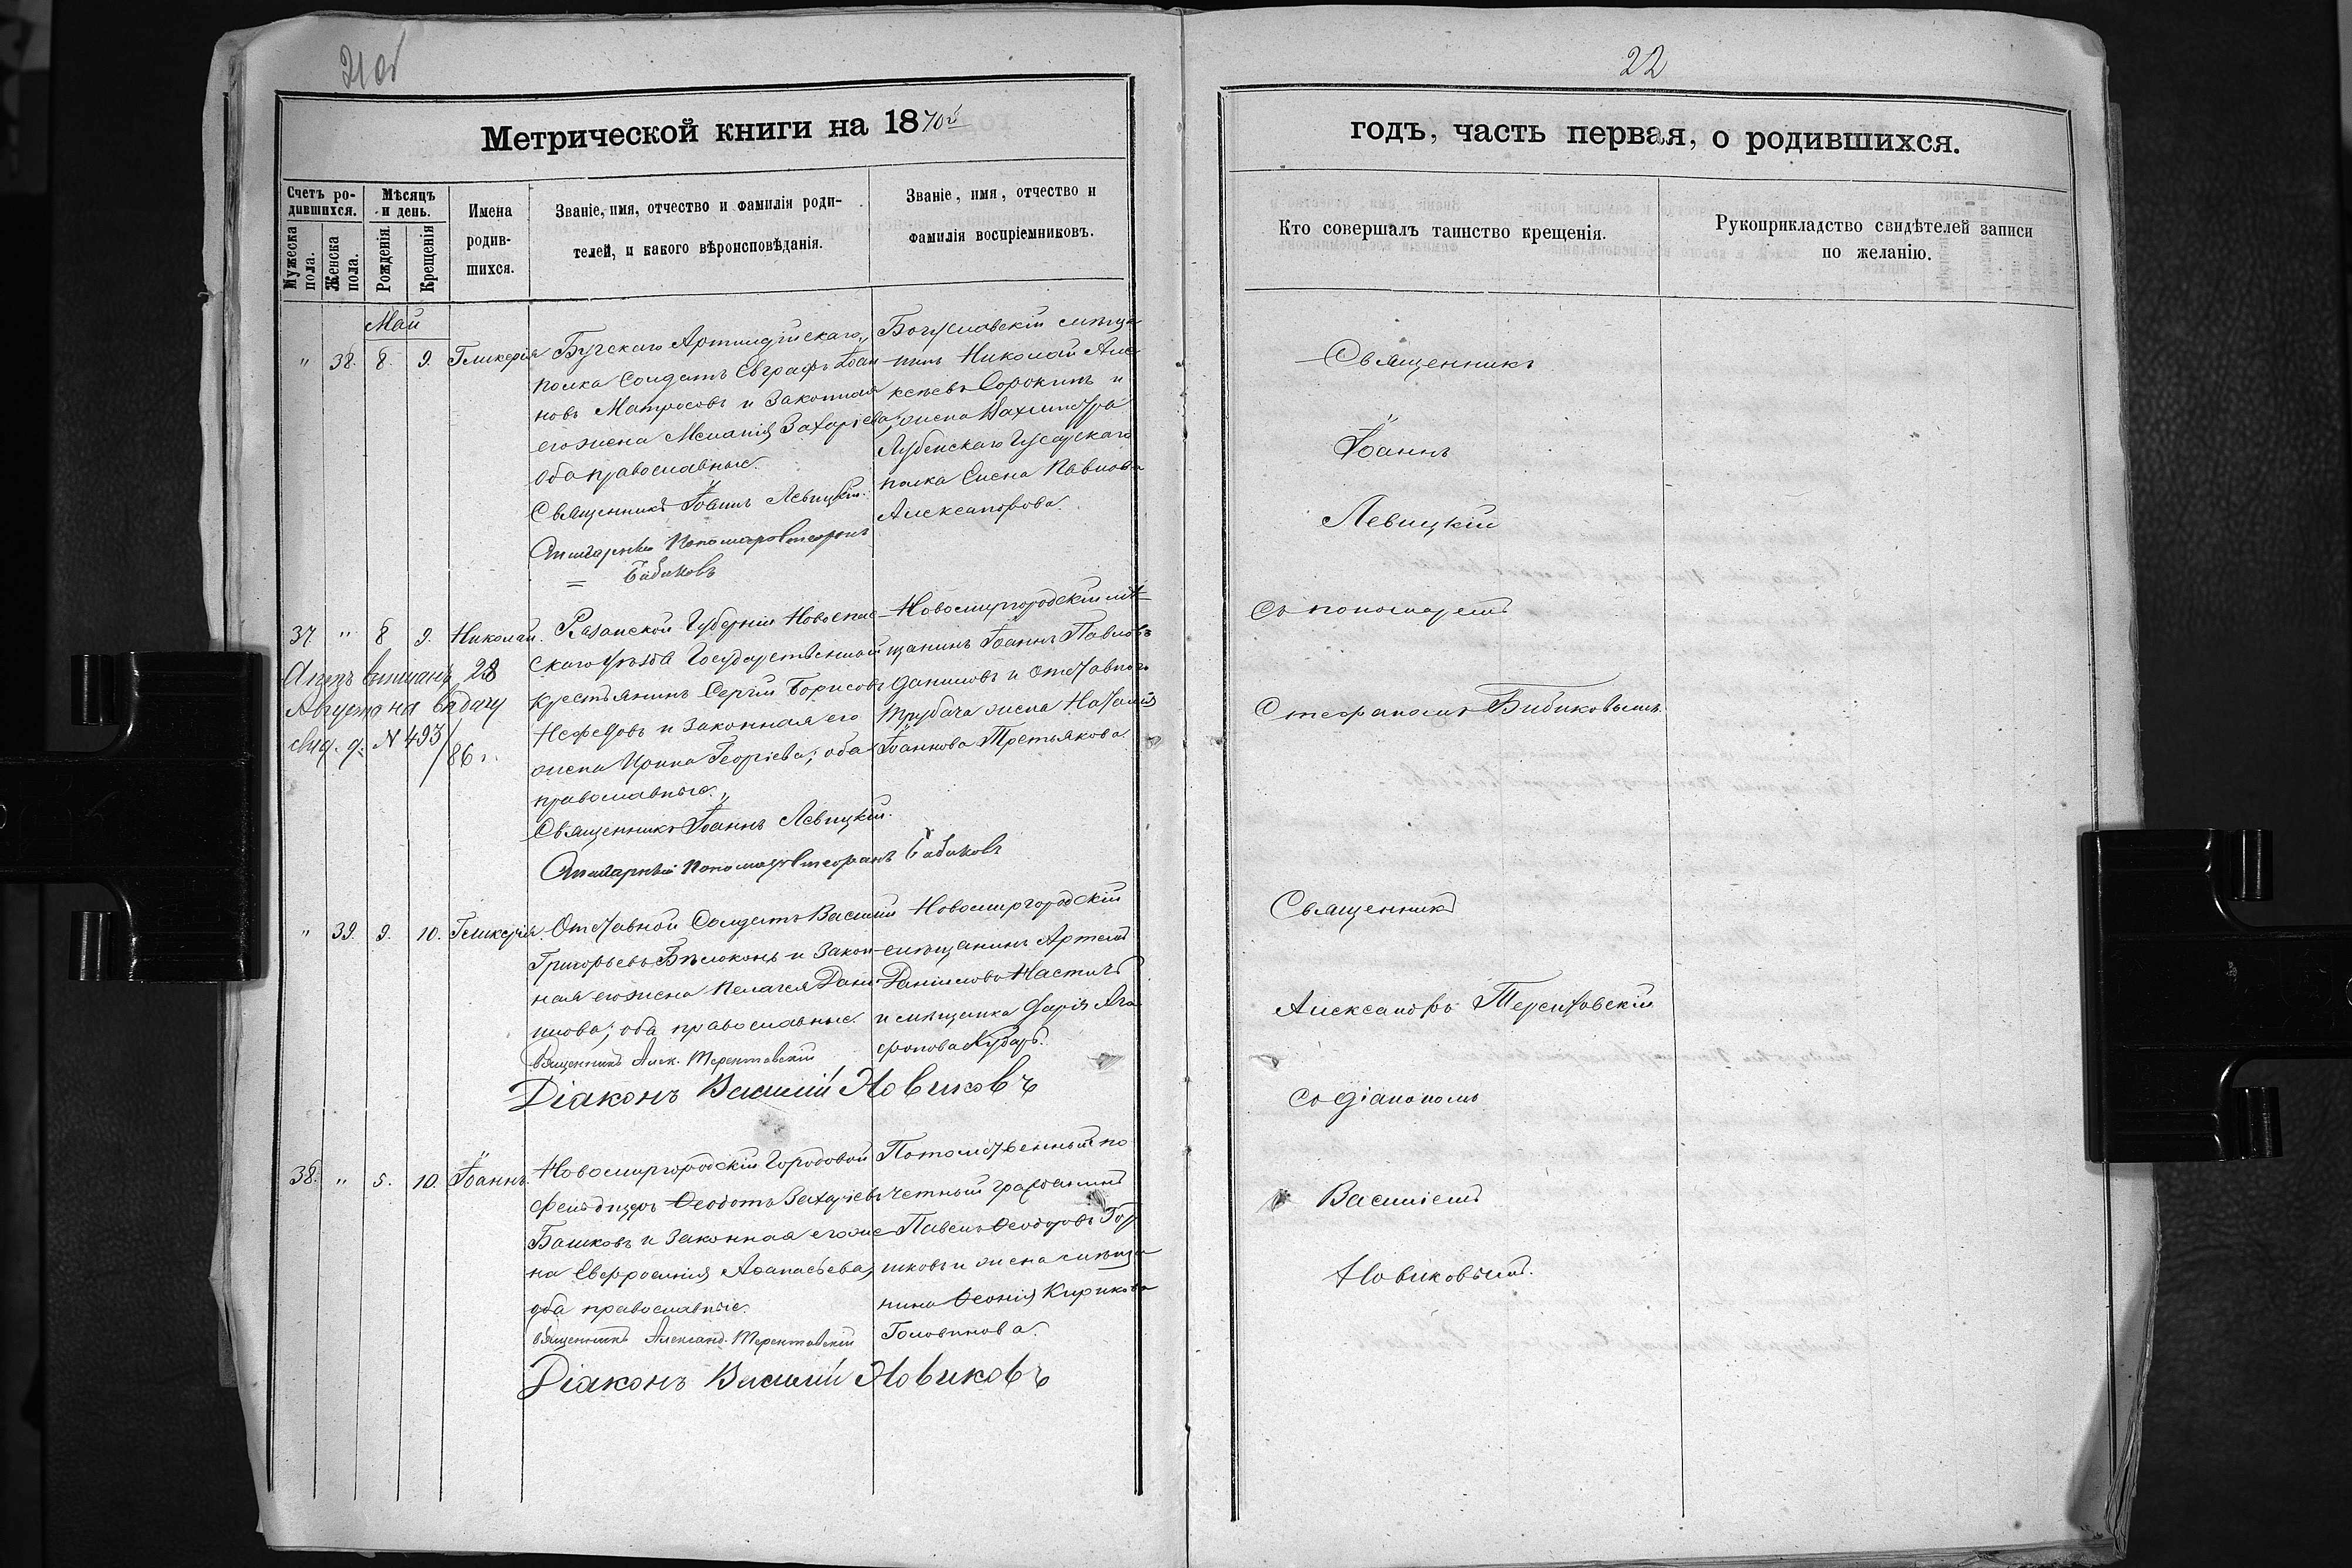 21 об
22
Метрической книги на 1870й
годъ, часть первая, о родившихся.
Счетъ ро-
дившихся.
Мужеска пола.
Женска пола.
Мѣсяцъ
и день.
Рожденія.
Крещенія
Имена
родив-
шихся.
Званіе, имя, отчество и фамилія роди-
телей, и какого вѣроисповѣданія.
Званіе, имя, отчество и
фамилія воспріемниковъ.
Кто совершалъ таинство крещенія.
Рукоприкладство свидѣтелей записи
по желанію.
Май
" 38. 8. 9. Гликерія
полка Солдатъ Евграфъ Іоан
новъ Матросовъ и законная
его жена Меланія Захаріева,
оба православные.
Священникъ Іоаннъ Левицкій.
Пономарь Стефанъ
= Бибиковъ
Богуславскій мѣща
нинъ Николай Але
ксѣевъ Сорокинъ и
жена Вахмистра
Лубенскаго Гусарскаго
полка Елена Павлова
Александрова.
Священникъ
Іоаннъ
Левицкій
съ пономаремъ
Стефаномъ Бибиковымъ.
37 " 8 9. Николай.
28
Августа на выдачу
свид. д. N 493/86 г.
Рязанской Губерніи Новоспас
скаго уѣзда Государственный
крестьянинъ Сергій Борисовъ
Нефедовъ и законная его
жена Ирина Георгіева; оба
православные.
Священникъ Іоаннъ Левицкій.
Пономарь Стефанъ Бибиковъ
Новомиргородскій мѣ
щанинъ Іоаннъ Павловъ
Даниловъ и отставнаго
Трубача жена Наталія
Іоаннова Третьякова
" 39. 9. 10. Гликерія.
Отставной Солдатъ Василій
Григорьевъ Бѣлоконь и закон-
ная его жена Пелагея Дани
илова; оба православные.
Священникъ Алек. Терентовскій
Діаконъ Василій Новиковъ
Новомиргородскій
мѣщанинъ Артемій
Даниловъ
и мѣщанка Дарія Ага
фонова
Священникъ
Александръ Терентовскій
съ діакономъ
Василіемъ
Новиковымъ.
38. " 5. 10. Іоаннъ.
Новомиргородскій Городовой
фельдшеръ Ѳеодотъ Захаріевъ
Башковъ и законная его же
на Евфросинія Аѳанасьева,
оба православные.
Священникъ Александ. Терентовскій
Діаконъ Василій Новиковъ
Потомственный по
четный гражданинъ
Павелъ Ѳеодоровъ
шковъ и жена мѣща
нина Ѳеонія Кирикова
Головинова.